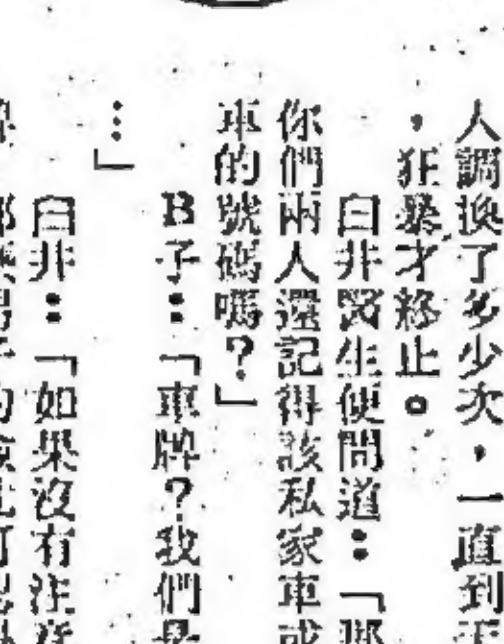 人調換了多少次，一直到天
，狂暴才終止。
臼井醫生便問道：「那
你們兩人還記得該私家車或
車的號碼嗎？」
B子：「車牌？我們是
⋯」
臼井：「如果沒有注意